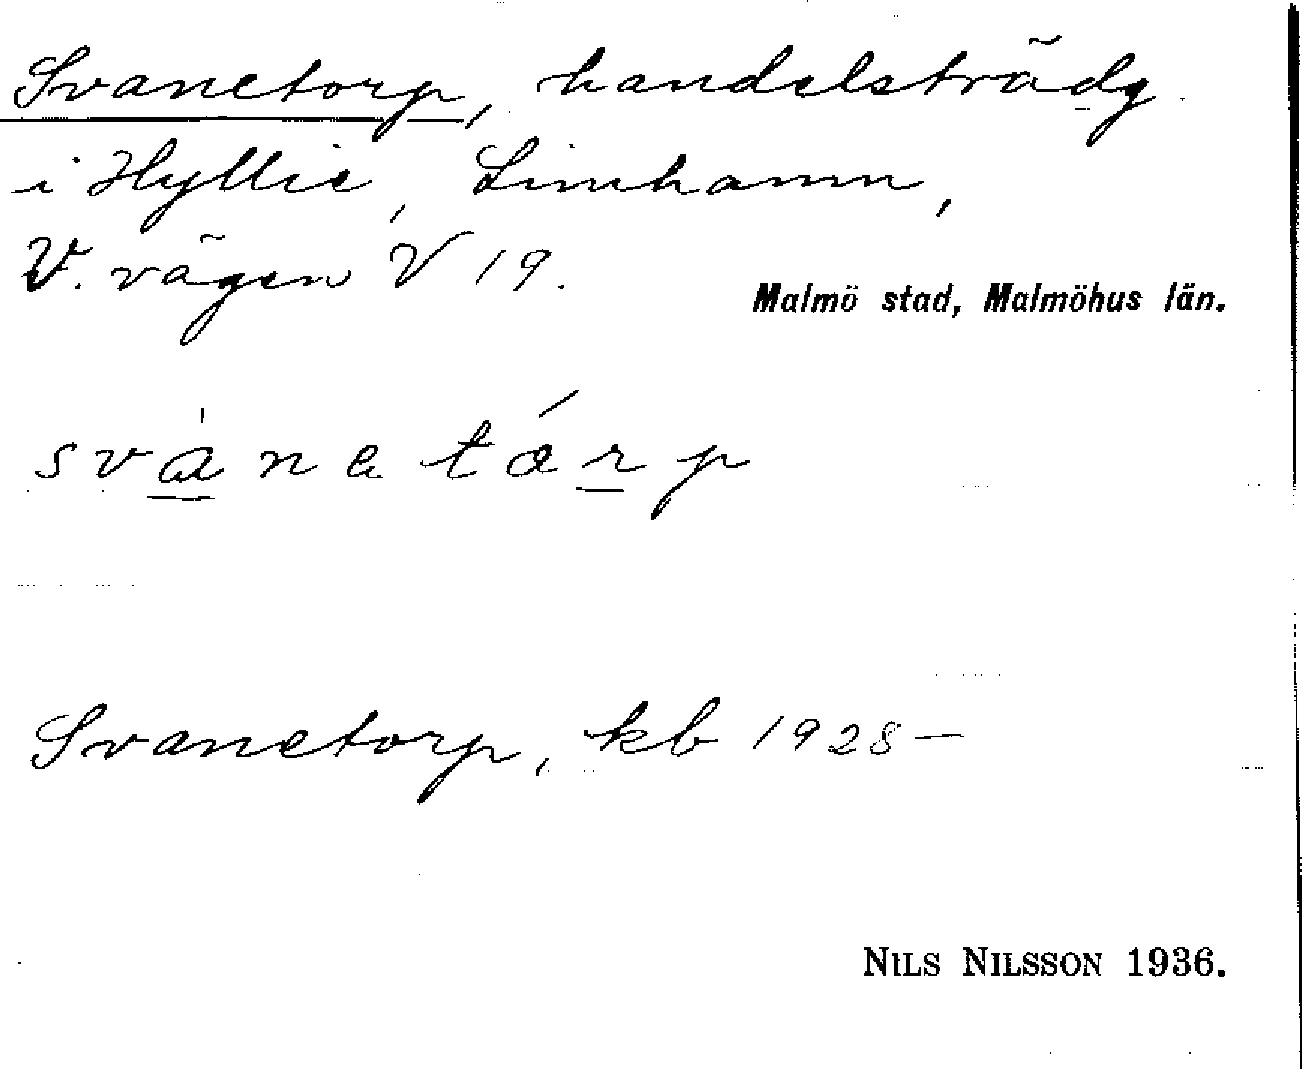 Svanetorp, handelsträdg
i Hyllie, Limhamn,
V. vägen V 19.
Malmö stad, Malmöhus län.
svànatárp
Svanetorp, kb 1928–
NILS NILSSON 1936.